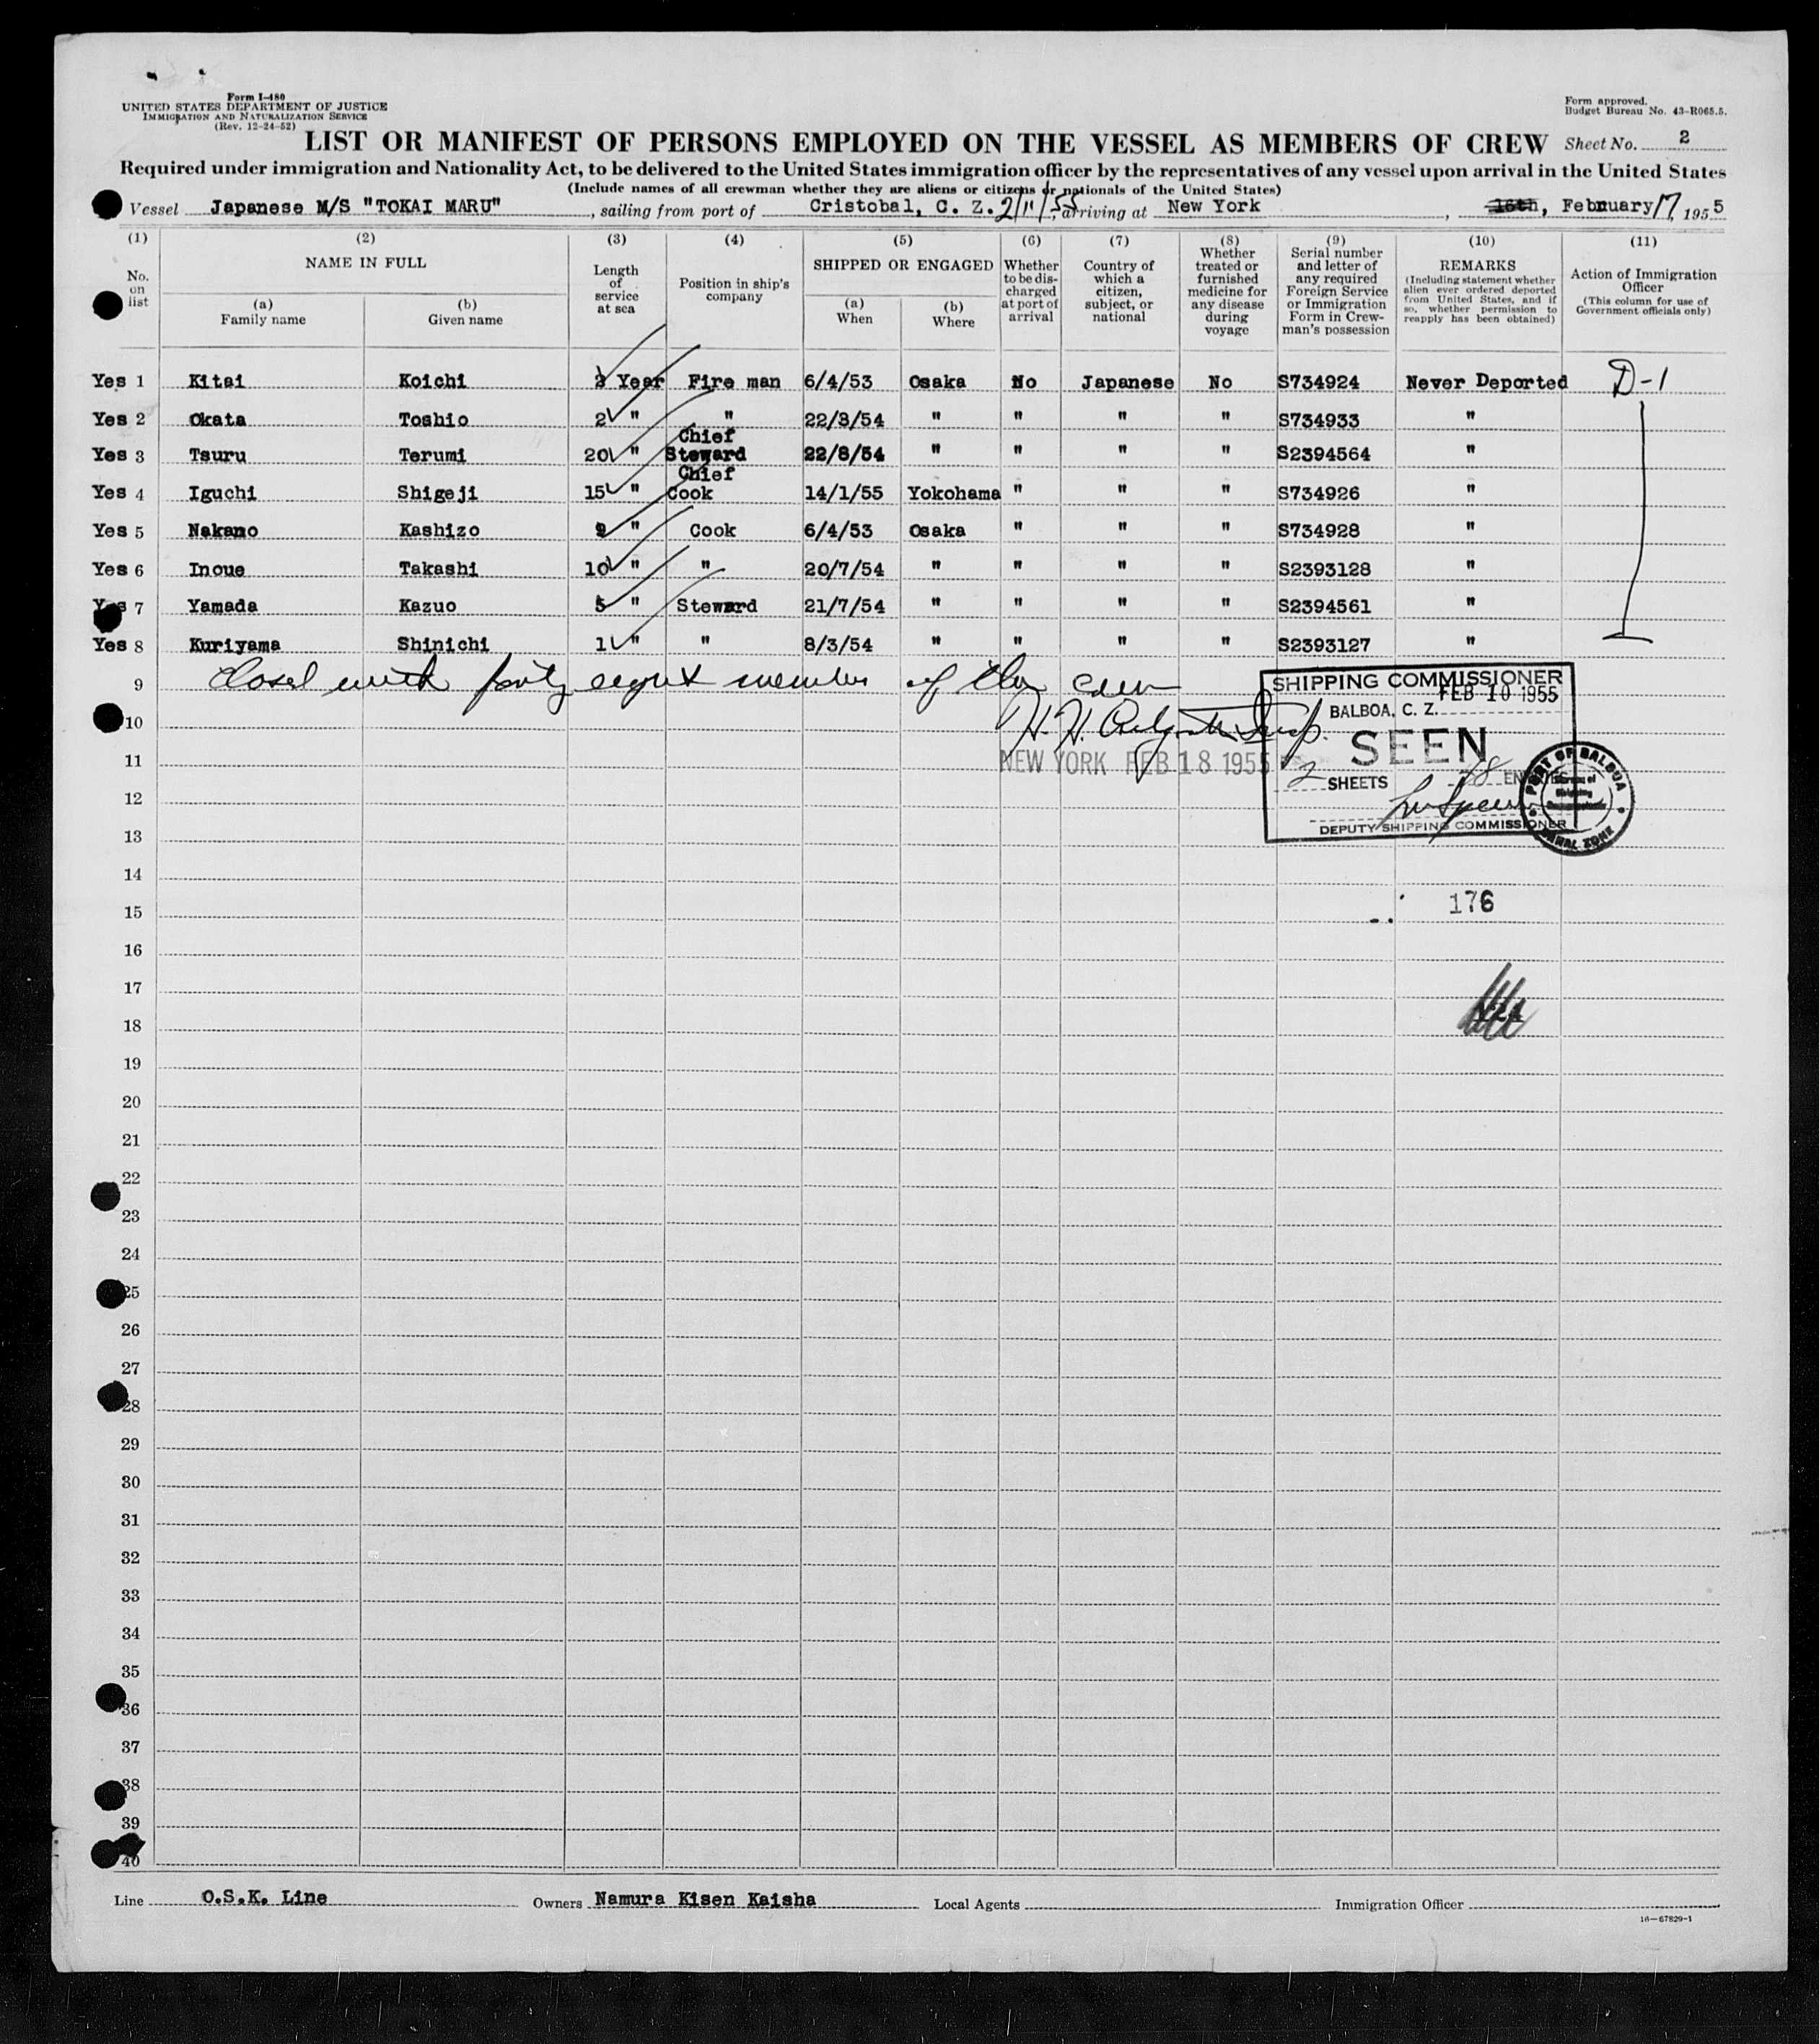 Form I-480
UNITED STATES DEPARTMENT OF JUSTICE
IMMIGRATION AND NATURALIZATION SERVICE
(Rev. 12-24-52)
Form approved.
Budget Bureau No. 43-R065.5.
LIST OR MANIFEST OF PERSONS EMPLOYED ON THE VESSEL AS MEMBERS OF CREW
Sheet No. 2
Required under immigration and Nationality Act, to be delivered to the United States immigration officer by the representatives of any vessel upon arrival in the United States
(Include names of all crewman whether they are aliens or citizens or nationals of the United States)
Vessel Japanese M/S "TOKAI MARU", sailing from port of Cristobal, C. Z. 2/11/55, arriving at New York, 16th, February 17, 1955
(1) (2) (3) (4) (5) (6) (7) (8) (9) (10) (11)
No. on list
NAME IN FULL
(a) Family name
(b) Given name
Length of service at sea
Position in ship's company
SHIPPED OR ENGAGED
(a) When
(b) Where
Whether to be discharged at port of arrival
Country of which a citizen, subject, or national
Whether treated or furnished medicine for any disease during voyage
Serial number and letter of any required Foreign Service or Immigration Form in Crewman's possession
REMARKS
(Including statement whether alien ever ordered deported from United States, and if so, whether permission to reapply has been obtained)
Action of Immigration Officer
(This column for use of Government officials only)
Yes 1 Kitai Koichi Year Fire man 6/4/53 Osaka No Japanese No S734924 Never Deported D-1
Yes 2 Okata Toshio 2 " " 22/8/54 " " " " S734933 "
Yes 3 Tsuru Terumi 20 " Chief Steward 22/8/54 " " " " S2394564 "
Yes 4 Iguchi Shigeji 15 " Chief Cook 14/1/55 Yokohama " " " S734926 "
Yes 5 Nakano Kashizo 9 " Cook 6/4/53 Osaka " " " S734928 "
Yes 6 Inoue Takashi 10 " " 20/7/54 " " " " S2393128 "
Yes 7 Yamada Kazuo 5 " Steward 21/7/54 " " " " S2394561 "
Yes 8 Kuriyama Shinichi 1 " " 8/3/54 " " " " S2393127 "
9 Closed with forty eight member of the crew
SHIPPING COMMISSIONER
FEB 10 1955
BALBOA, C. Z.
10
SEEN
11 NEW YORK FEB 18 1955
2 SHEETS 48
DEPUTY SHIPPING COMMISSIONER
PORT OF BALBOA
CANAL ZONE
12
13
14
15 176
16
17
18
19
20
21
22
23
24
25
26
27
28
29
30
31
32
33
34
35
36
37
38
39
40
Line O.S.K. Line Owners Namura Kisen Kaisha Local Agents Immigration Officer
16—67829-1